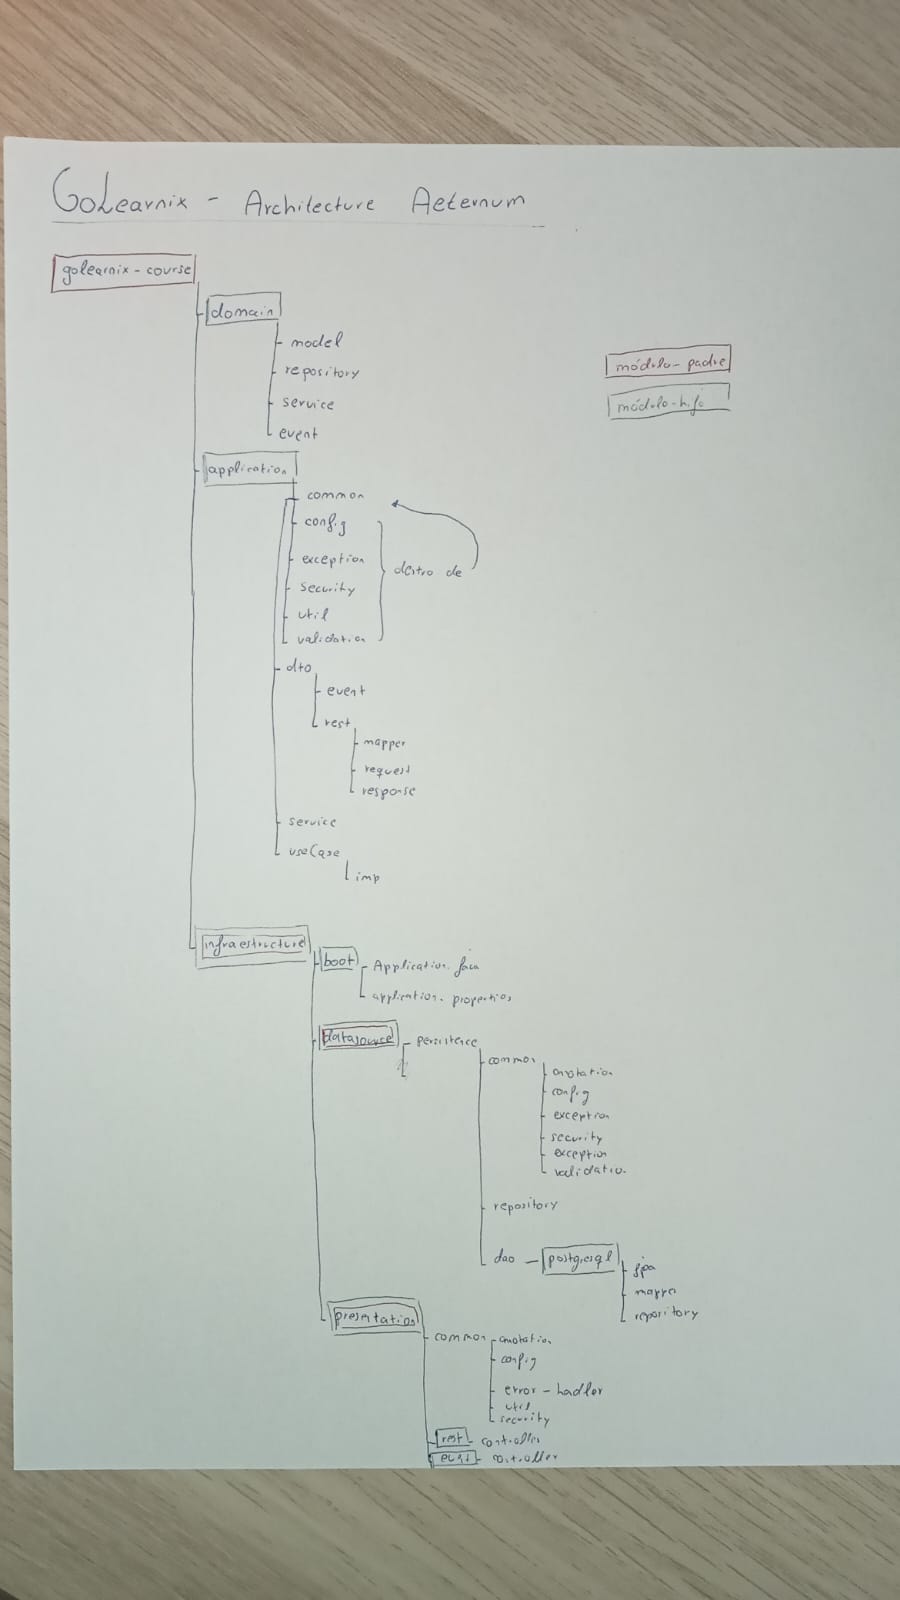 GoLearnix - Architecture Aeternum
golearnix - course
domain
model
repository
service
event
módulo - padre
módulo - hijo
application
common
config
exception
security
util
validation
dentro de
dto
event
rest
mapper
request
response
service
useCase
imp
infraestructure
boot
Application.java
application.properties
datasource
persistence
common
anotation
config
exception
security
exception
validation
repository
dao - postgresql
jpa
mapper
repository
presentation
common
anotation
config
error - hadler
util
security
rest - controller
event - controller